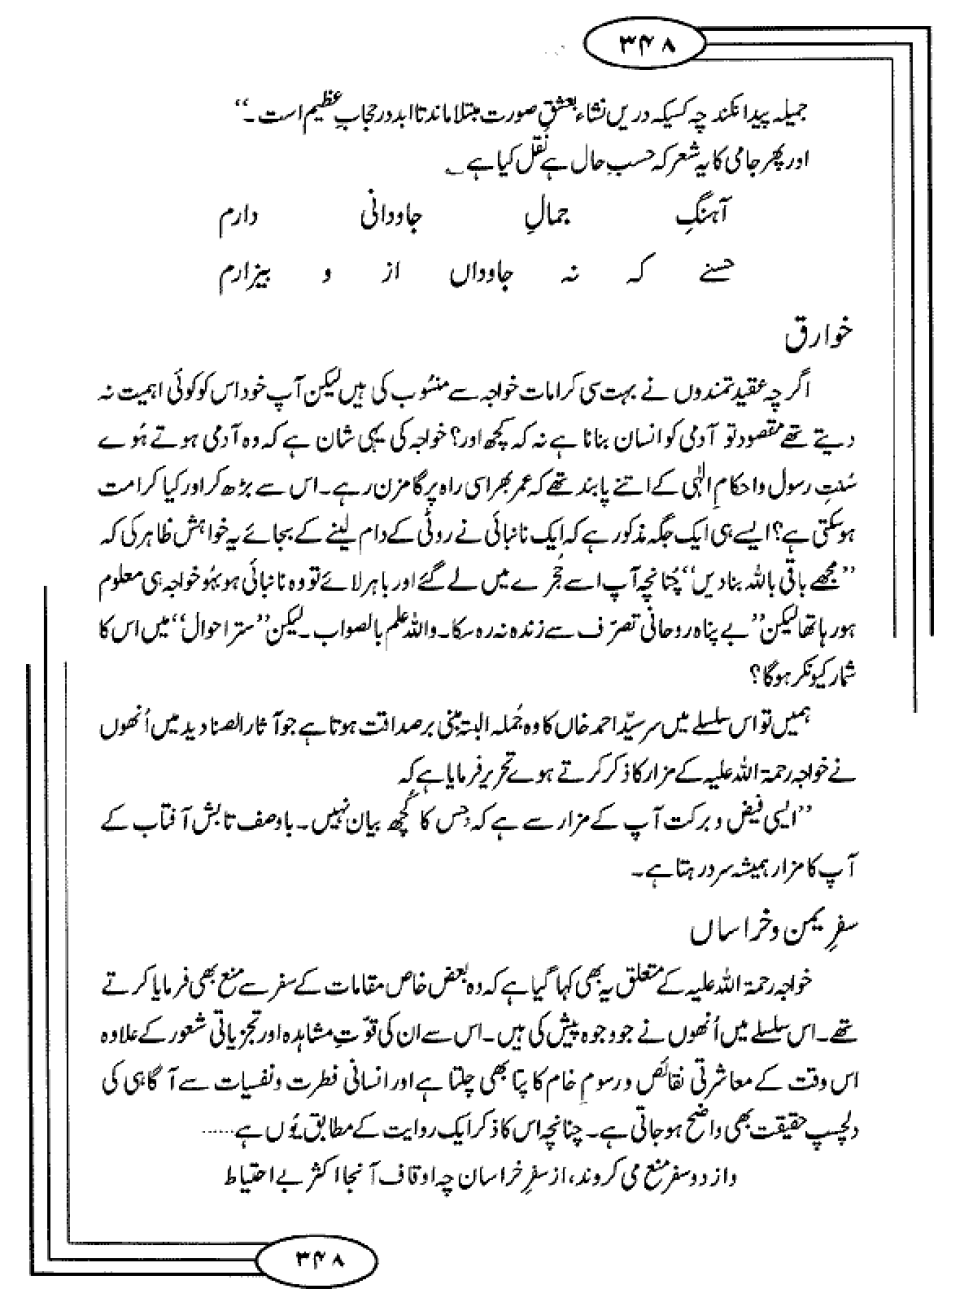 ۳۴۸
جمیلہ پیدا نکند چہ کسیکہ دریں نشاء بعشقِ صورت مبتلا ماند تا ابد در حجابِ عظیم است۔“
اور پھر جامی کا یہ شعر کہ حسب حال ہے نقل کیا ہے ؂
آہنگِ جمالِ جاودانی دارم
حسنے کہ نہ جاوداں از و بیزارم
خوارق
اگرچہ عقیدتمندوں نے بہت سی کرامات خواجہ سے منسُوب کی ہیں لیکن آپ خود اس کو کوئی اہمیت نہ
دیتے تھے مقصود تو آدمی کو انسان بنانا ہے نہ کہ کچھ اور؟ خواجہ کی یہی شان ہے کہ وہ آدمی ہوتے ہُوے
سُنتِ رسول و احکامِ الٰہی کے اتنے پابند تھے کہ عمر بھر اسی راہ پر گامزن رہے۔ اس سے بڑھ کر اور کیا کرامت
ہوسکتی ہے؟ ایسے ہی ایک جگہ مذکور ہے کہ ایک نانبائی نے روٹی کے دام لینے کے بجائے یہ خواہش ظاہر کی کہ
”مجھے باقی باللہ بنادیں“ چنانچہ آپ اسے حُجرے میں لے گئے اور باہر لائے تو وہ نانبائی ہوبہُو خواجہ ہی معلوم
ہورہا تھا لیکن ”بے پناہ روحانی تصرّف سے زندہ نہ رہ سکا۔ واللہ علم بالصواب۔ لیکن ”ستر احوال“ میں اس کا
شمار کیونکر ہوگا؟
ہمیں تو اس سلسلے میں سر سیّد احمد خاں کا وہ جُملہ البتہ مبنی بر صداقت ہوتا ہے جو آثار الصنادید میں اُنھوں
نے خواجہ رحمۃ اللہ علیہ کے مزار کا ذکر کرتے ہوے تحریر فرمایا ہے کہ
”ایسی فیض و برکت آپ کے مزار سے ہے کہ جس کا کُچھ بیان نہیں۔ باوصف تابش آفتاب کے
آپ کا مزار ہمیشہ سرد رہتا ہے۔
سفرِ یمن و خراساں
خواجہ رحمۃ اللہ علیہ کے متعلق یہ بھی کہا گیا ہے کہ وہ بعض خاص مقامات کے سفر سے منع بھی فرمایا کرتے
تھے۔ اس سلسلے میں اُنھوں نے جو وجوہ پیش کی ہیں۔ اس سے ان کی قوّتِ مشاہدہ اور تجزیاتی شعور کے علاوہ
اس وقت کے معاشرتی نقائص و رسومِ خام کا پتا بھی چلتا ہے اور انسانی فطرت و نفسیات سے آگاہی کی
دلچسپ حقیقت بھی واضح ہوجاتی ہے۔ چنانچہ اس کا ذکر ایک روایت کے مطابق یُوں ہے......
و از دو سفر منع می کروند، از سفرِ خراسان چہ اوقاف آنجا اکثر بے احتیاط
۳۴۸